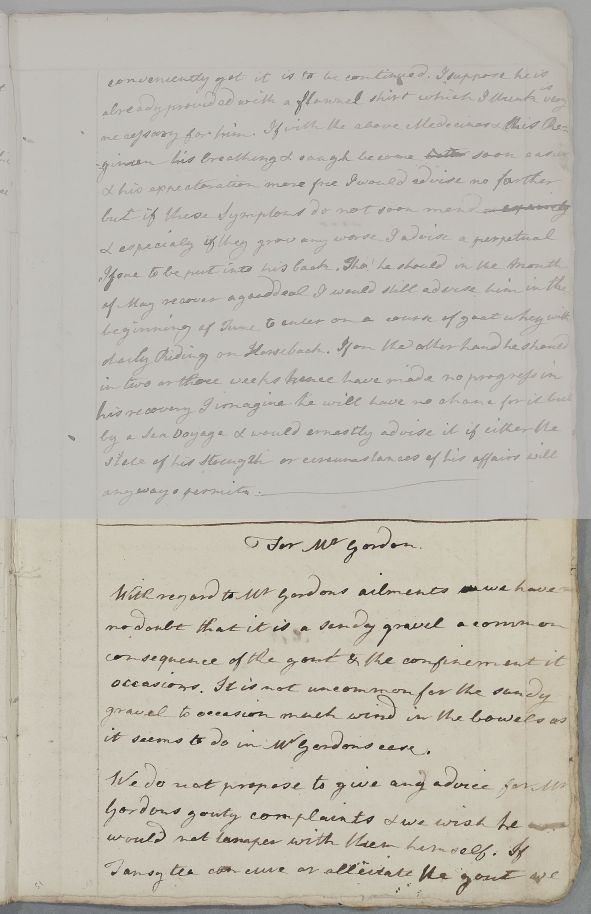 conveniently got it is to be continued. I suppose he is
already provided with a flannel shirt which I think is very
necessary for him. If with the above Medecines & this Re=
-gimen his breathing & cough become soon easier
& his expectoration more free I would advise no farther
but if these Symptoms do not soon mend
& especialy if they grow any worse I advise a perpetual
Issue to be put into his back. Tho' he should in the Month
of May recover a good deal I would still advise him in the
beginning of June to enter on a course of goat whey with
daily Riding on Horseback. If on the other hand he should
in two or three weeks hence have made no progress in
his recovery I imagine he will have no chance for it but
by a Sea Voyage & would ernestly advise it if either the
State of his Strength or circumstances of his affairs will
anyways permit.
For Mr Gordon.
With regard to Mr Gordons ailments we have
no doubt that it is a sandy gravel a common
consequence of the gout & the confinement it
occasions. It is not uncommon for the sandy
gravel to occasion much wind in the bowels as
it seems to do in Mr Gordons case.
We do not propose to give any advice for Mr
Gordons gouty complaints & we wish he
would not tamper with them himself. If
Tansy tea can cure or alleviate the gout we